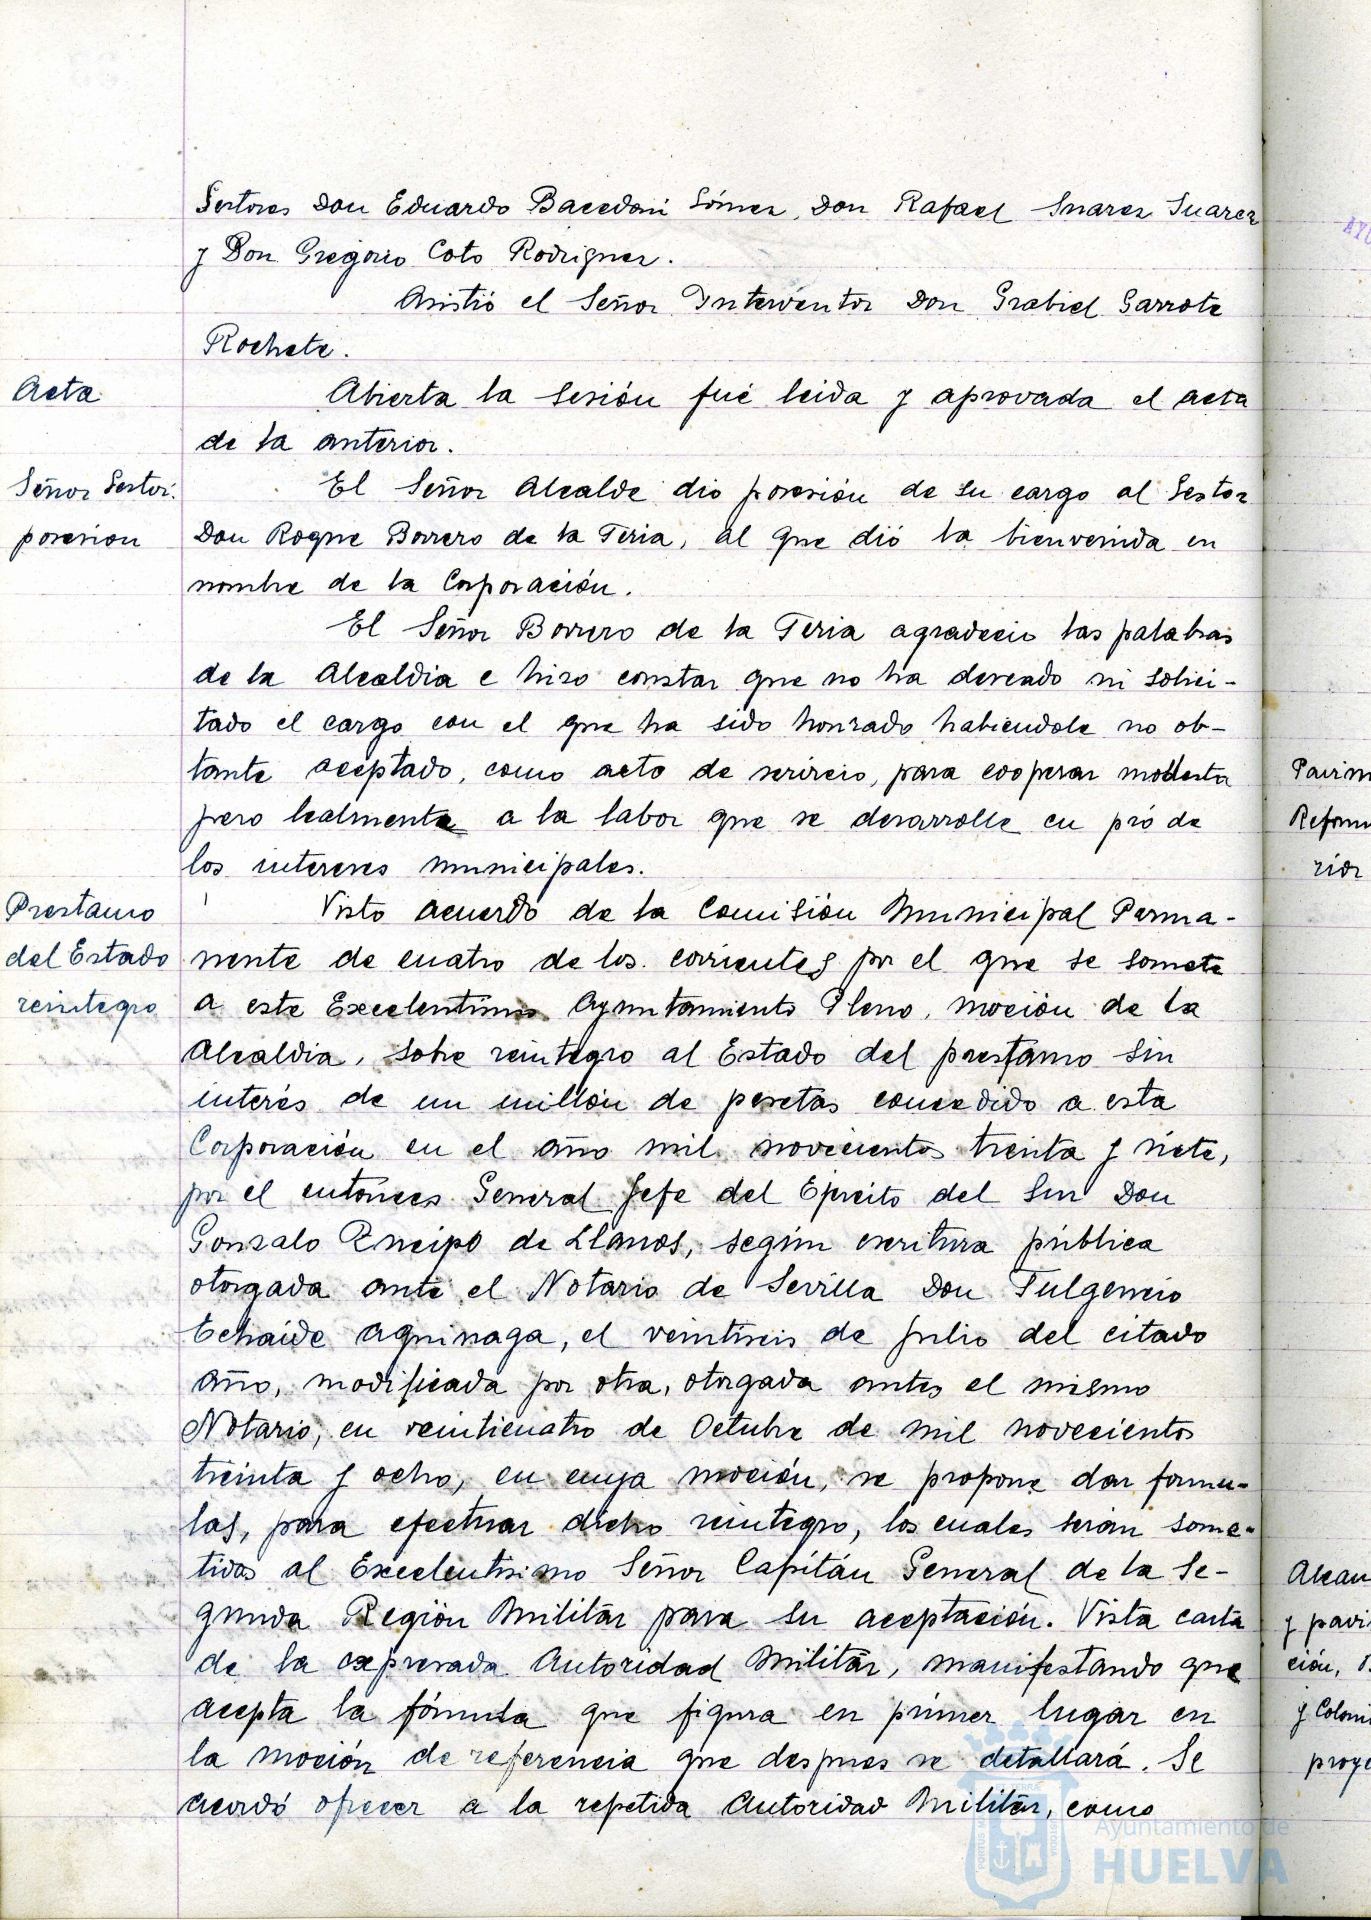 Gestores Don Eduardo Bacedoni Gómez, Don Rafael Suarez Suarez
y Don Gregorio Coto Rodriguez.
Asistió el Señor Interventor Don Grabiel Garrote
Rochete.
Acta
Abierta la sesión fué leida y aprovada el acta
de la anterior.
Señor Gestor.
posesion
El Señor Alcalde dio posesión de su cargo al Gestor
Don Roque Borrero de la Feria, al que dió la bienvenida en
nombre de la Corporación.
El Señor Borrero de la Feria agradecio las palabras
de la Alcaldia e hizo constar que no ha deseado ni solici-
tado el cargo con el que ha sido honrado habiendole no obs-
tante aceptado, como acto de servicio, para cooperar modesta
pero lealmente a la labor que se desarrolle en pró de
los intereses municipales.
Prestamo
del Estado
reintegro
Visto acuerdo de la Comisión Municipal Perma-
nente de cuatro de los corrientes por el que se somete
a este Excelentisimo Ayuntamiento Pleno, moción de la
Alcaldia, sobre reintegro al Estado del prestamo sin
interés de un millón de pesetas concedido a esta
Corporación en el año mil novecientos treinta y siete,
por el entonces General Jefe del Ejercito del Sur Don
Gonzalo Queipo de Llanos, según escritura pública
otorgada ante el Notario de Sevilla Don Fulgencio
Echaide Aguinaga, el veintiseis de julio del citado
año, modificada por otra, otorgada antes el mismo
Notario, en veinticuatro de Octubre de mil novecientos
treinta y ocho, en cuya moción, se propone dar formu-
las, para efectuar dicho reintegro, los cuales serán some-
tidas al Excelentisimo Señor Capitán General de la Se-
gunda Región Militar para su aceptación. Vista carta
de la expresada Autoridad Militar, manifestando que
acepta la fórmula que figura en primer lugar en
la moción de referencia que despues se detallará. Se
acordó ofrecer a la repetida Autoridad Militar, como
Ayuntamiento de
HUELVA
Pavim
Reform
rior
Alcan
y pavi
ción,
y Coloni
proye